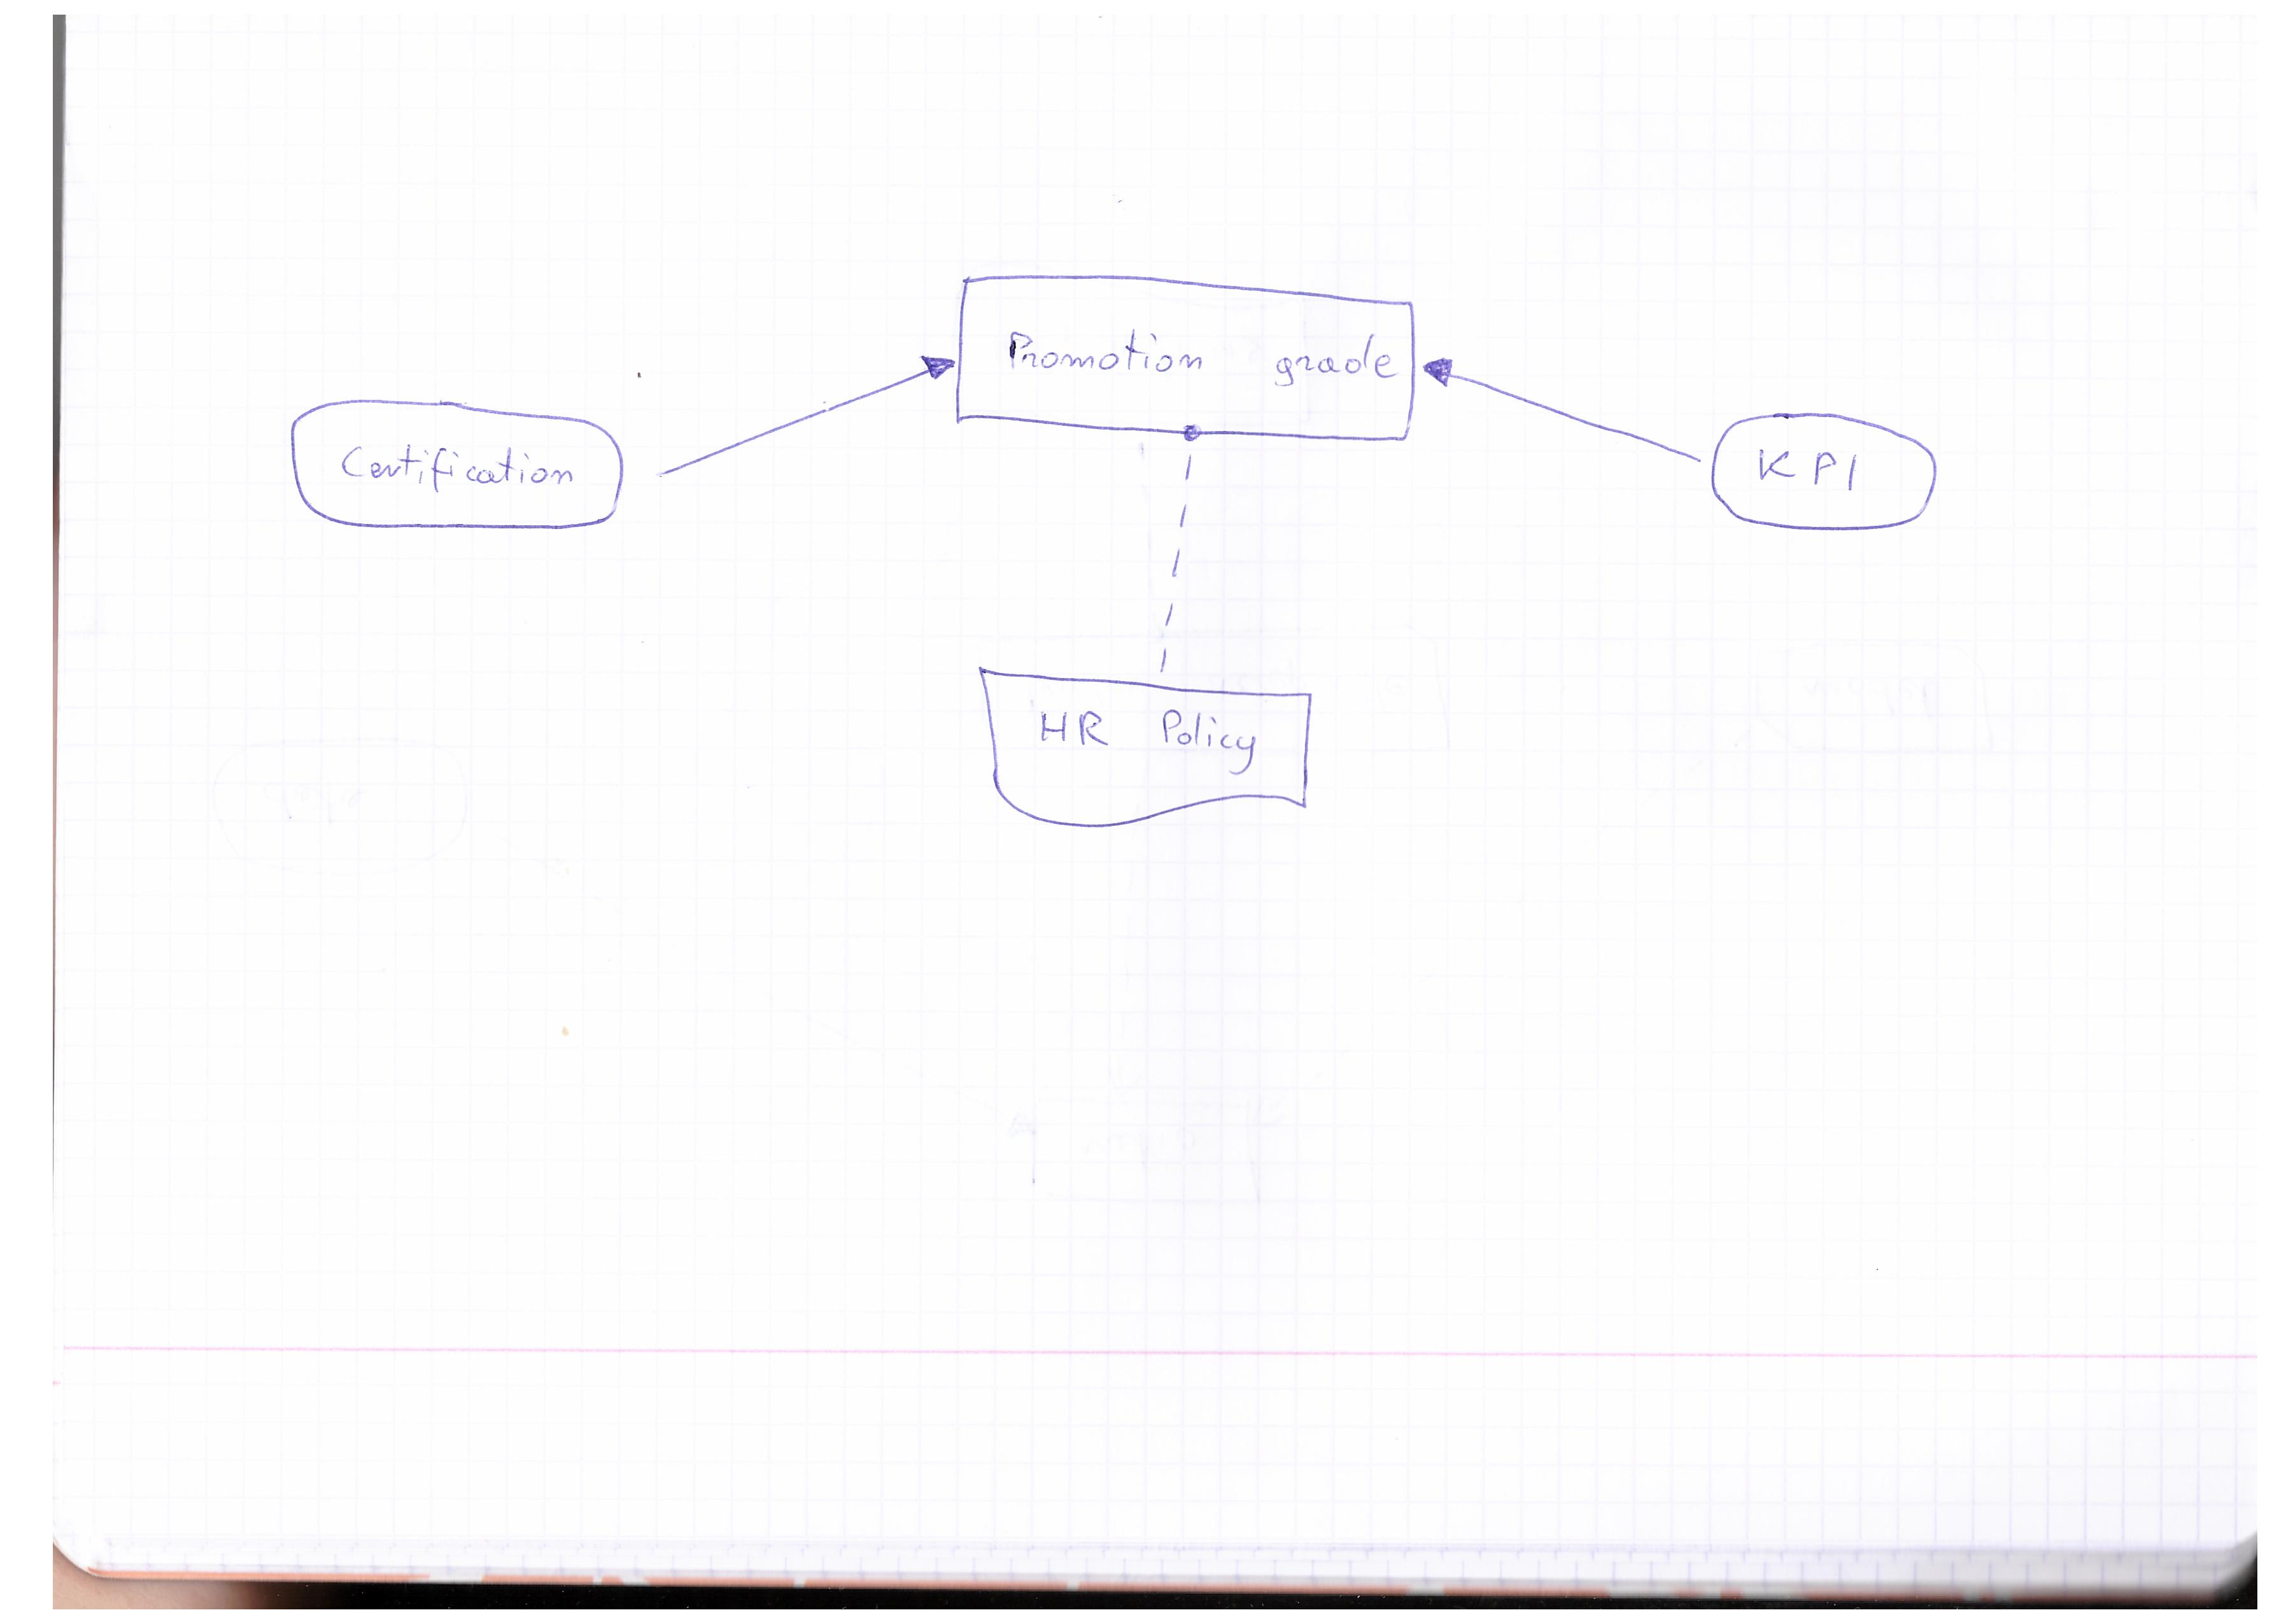 Promotion grade
Certification
KPI
HR Policy